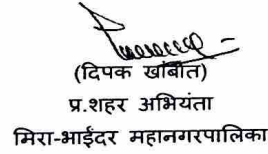 (दिपक खांबीत)
प्र.शहर अभियंता
मिरा-भाईंदर महानगरपालिका